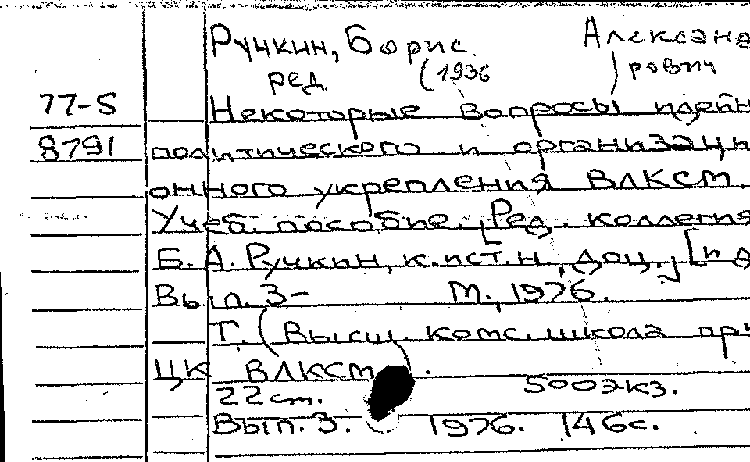 Ручкин, Борис Александ
ред. (1936 рович)
77-5 Некоторые вопросы идейн
8791 политического и организаци
онного укрепления ВЛКСМ.
Учеб. пособие. [Ред. коллегия
Б. А. Ручкин, к.ист.н., доц.] [и д
Вып. 3- М., 1976.
Т. (Высш. комс. школа при
ЦК ВЛКСМ).
22 см. 500экз.
Вып. 3. 1976. 146с.